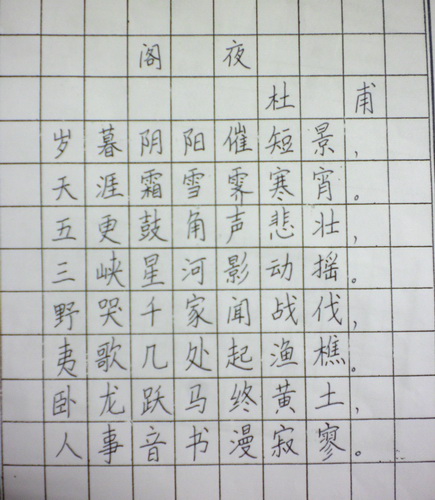 阁 夜
杜 甫
岁暮阴阳催短景，
天涯霜雪霁寒宵。
五更鼓角声悲壮，
三峡星河影动摇。
野哭千家闻战伐，
夷歌几处起渔樵。
卧龙跃马终黄土，
人事音书漫寂寥。